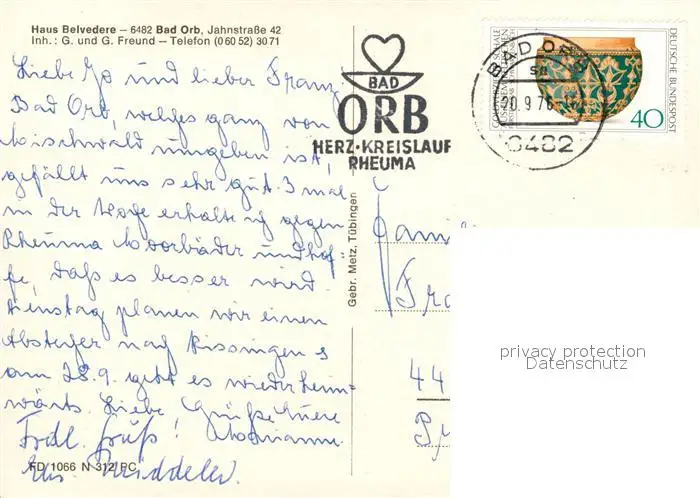 Haus Belvedere – 6482 Bad Orb, Jahnstraße 42
Inh.: G. und G. Freund – Telefon (0 60 52) 30 71
Liebe Jo und lieber Franz!
Bad Orb, welches ganz von
Mischwald umgeben ist,
gefällt uns sehr gut. 3 mal
in der Woche erhalte ich gegen
Rheuma Moorbäder und hof-
fe, daß es besser wird.
Dienstag planen wir einen
Abstecher nach Kissingen &
am 28.9. geht es wieder heim-
wärts. Liebe Grüße Eure
Frdl. Gruß! Marianne
FD/1066 N 312/PC
BAD
ORB
HERZ·KREISLAUF
RHEUMA
BAD ORB
20.9.76
6482
DEUTSCHE BUNDESPOST
40
Gebr. Metz, Tübingen
Fami
Fr
44
privacy protection
Datenschutz